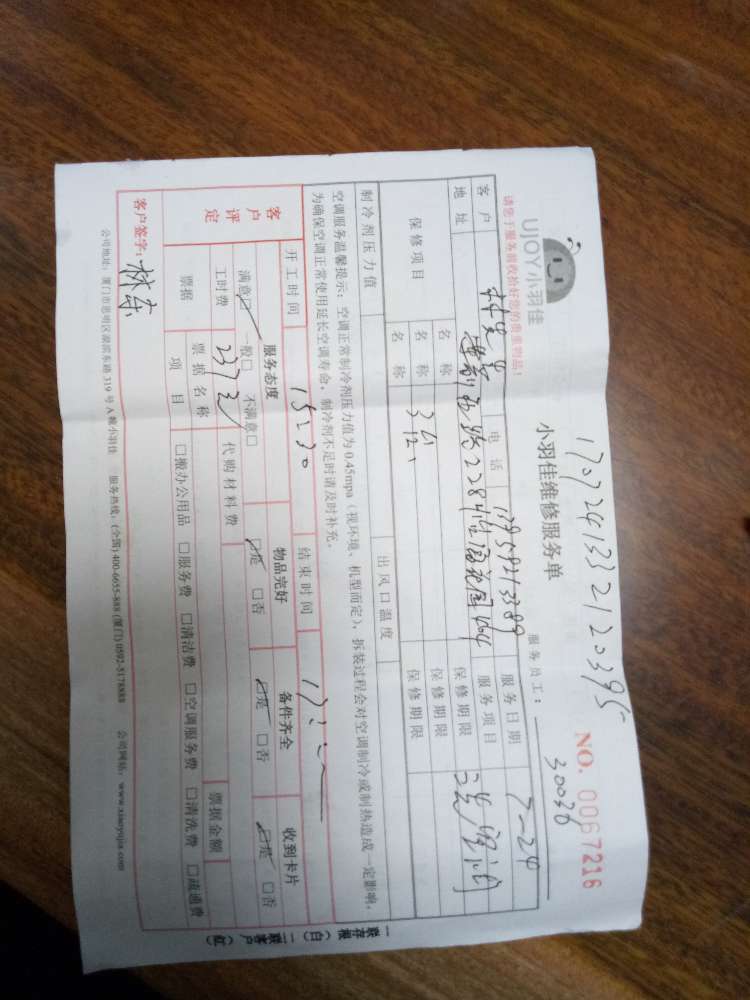 17072413321120395
NO. 0067216
UJOY小羽佳
小羽佳维修服务单
请您于服务前收拾好您的贵重物品!
服务员工: 30036
客户 电话 13959213389 服务日期 7-24
地址 228 服务项目
保修项目 名称 保修期限
名称 保修期限
名称 保修期限
制冷剂压力值 出风口温度
空调服务温馨提示:空调正常制冷剂压力值为0.45mpa(视环境、机型而定),拆装过程会对空调制冷或制热造成一定影响,
为确保空调正常使用延长空调寿命,制冷剂不足时请及时补充。
开工时间 15:30 结束时间
客户评定 服务态度 物品完好 备件齐全 收到卡片
满意□ 一般□ 不满意□ □是 □否 □是 □否 □是 □否
工时费 237元 代购材料费 票据金额
票据 票据名称
项目 □搬办公用品 □服务费 □清洁费 □空调服务费 □清洗费 □疏通费
客户签字:
公司地址:厦门市思明区湖滨东路319号A栋小羽佳 服务热线:(全国)400-6655-888(厦门)0592-5178888 公司网站:www.xiaoyujia.com
一联存根(白) 二联客户(红)